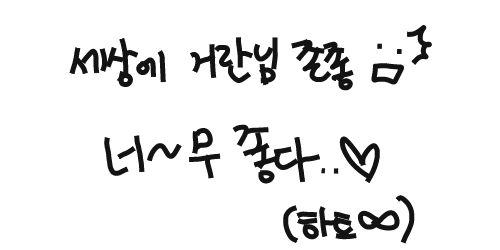 세상에 거란님 졸좋
너~무 좋다..♡
(하트∞)